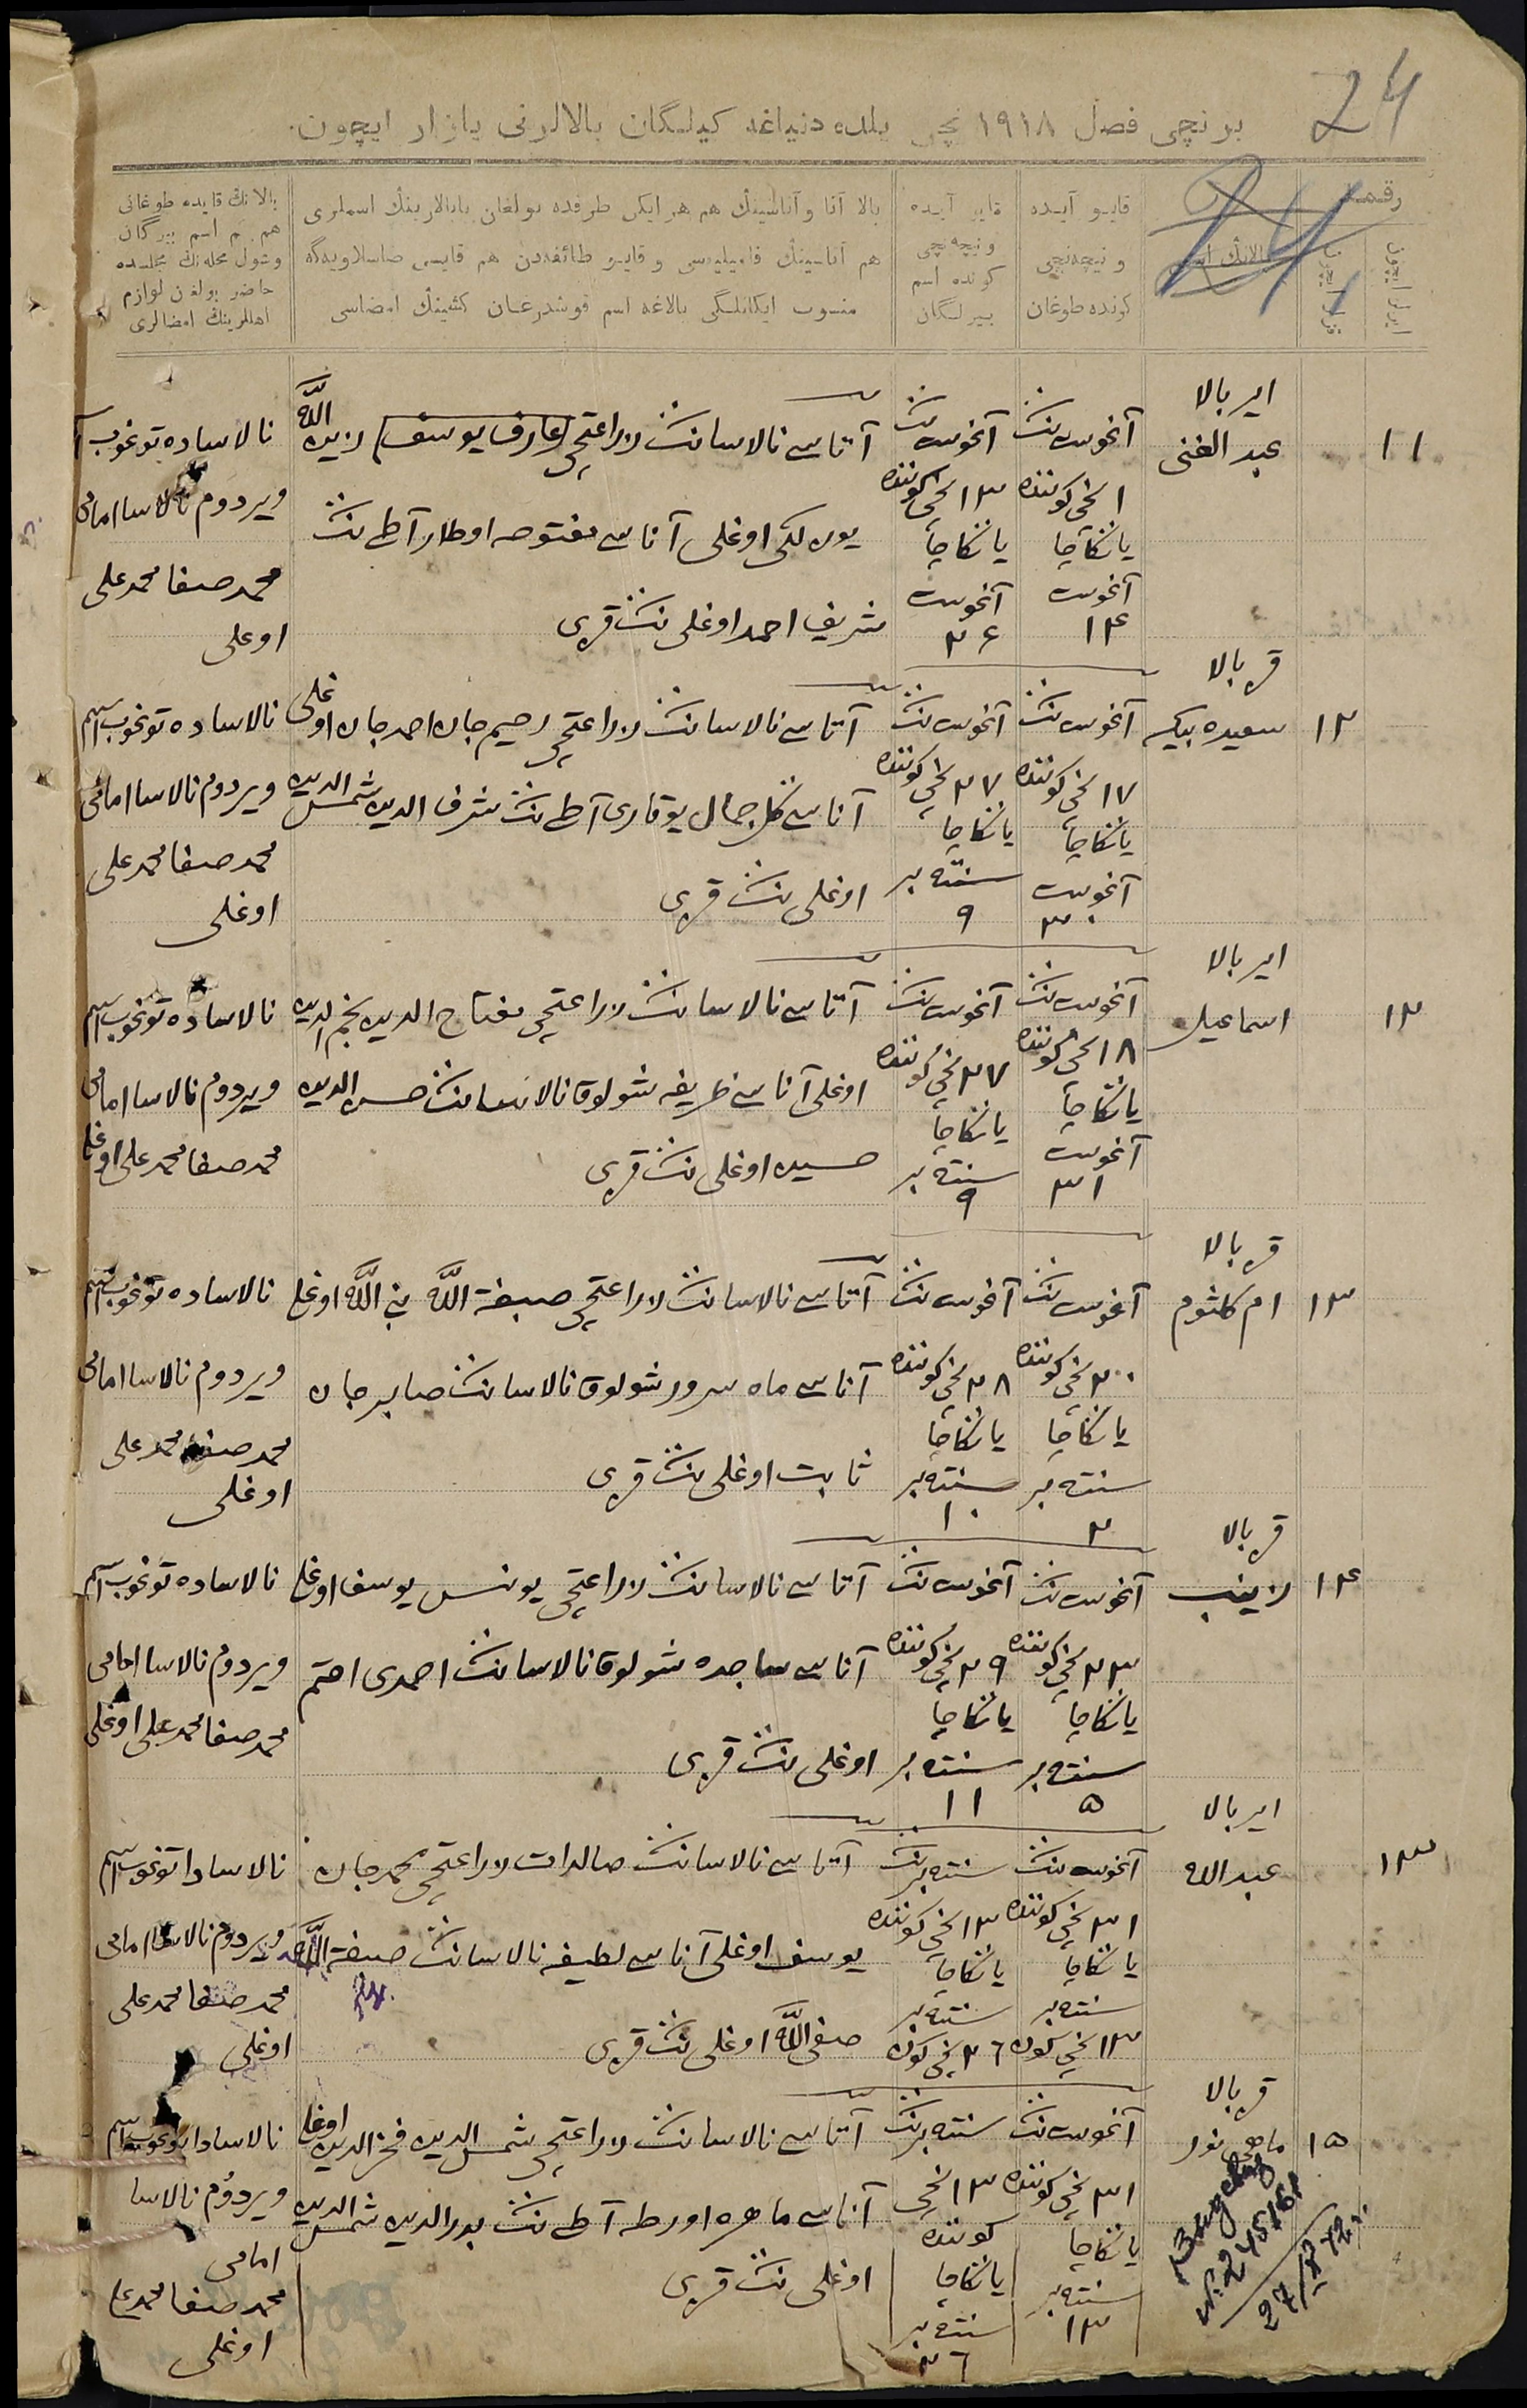 24
برنچی فصل ۱۹۱۸ نچی یلده دنیاغه کیلگان بالالرنی یازار ایچون.
رقملر
ایرلر ایچون
قزلر ایچون
بالانڭ اسمی
قایو آیده
و نیچه‌نچی
کونده طوغان
قایو آیده
و نیچه‌نچی
کونده اسم
بیرلگان
بالا آتا و آناسینڭ هم هر ایکی طرفده بولغان بابالارینڭ اسملری
هم آتاسینڭ فامیلیه‌سی و قایو طائفه‌دن هم قایسی صاسلاویه‌گه
منسوب ایکانلگی بالاغه اسم قوشدرغان کشینڭ امضاسی
بالانڭ قایده طوغانی
هم اسم بیرگان
وشول محله‌نڭ مجلسده
حاضر بولغن لوازم
اهللرینڭ امضالری
۱۱
ایر بالا
عبد الغنی
آغوست‌نڭ
۱ نچی کوننده
یانگاچا
آغوست
۱۴
آغوست‌نڭ
۱۳ نچی کوننده
یانگاچا
آغوست
۲۶
آتاسی نالاسانڭ لاراعتچی عارف یوسف زین الله
یولکی اوغلی آناسی مفتوحه اوطار آطی‌نڭ
شریف احمد اوغلی‌نڭ قزی
نالاساده توغوب آ
ویردوم نالاسا امامی
محمد صفا محمد علی
اوغلی
۱۲
قز بالا
سعیده بیکه
آغوست‌نڭ
۱۷ نچی کوننده
یانگاچا
آغوست
۳۰
آغوست‌نڭ
۲۷ نچی کوننده
یانگاچا
سنته‌بر
۹
آتاسی نالاسانڭ لاراعتچی رحیم جان احمد جان اوغلی
آناسی گل جمال یوقاری آطی‌نڭ شرف الدین شمس الدین
اوغلی‌نڭ قزی
نالاساده توغوب اسم
ویردوم نالاسا امامی
محمد صفا محمد علی
اوغلی
۱۲
ایر بالا
اسماعیل
آغوست‌نڭ
۱۸ نچی کوننده
یانگاچا
آغوست
۳۱
آغوست‌نڭ
۲۷ نچی کوننده
یانگاچا
سنته‌بر
۹
آتاسی نالاسانڭ لاراعتچی مفتاح الدین نجم الدین
اوغلی آناسی ظریفه شولوق نالاسانڭ حسن الدین
حسین اوغلی‌نڭ قزی
نالاساده توغوب اسم
ویردوم نالاسا امامی
محمد صفا محمد علی اوغلی
۱۳
قز بالا
ام کلثوم
آغوست‌نڭ
۲۰ نچی کوننده
یانگاچا
سنته‌بر
۲
آغوست‌نڭ
۲۸ نچی کوننده
یانگاچا
سنته‌بر
۱۰
آتاسی نالاسانڭ لاراعتچی صبغة الله نبی الله اوغلی
آناسی ماه سرور شولوق نالاسانڭ صابر جان
ثابت اوغلی‌نڭ قزی
نالاساده توغوب اسم
ویردوم نالاسا امامی
محمد صفا محمد علی
اوغلی
۱۴
قز بالا
زینب
آغوست‌نڭ
۲۳ نچی کوننده
یانگاچا
سنته‌بر
۵
آغوست‌نڭ
۲۹ نچی کوننده
یانگاچا
سنته‌بر
۱۱
آتاسی نالاسانڭ لاراعتچی یونس یوسف اوغلی
آناسی ساجده شولوق نالاسانڭ احمدی
اوغلی‌نڭ قزی
نالاساده توغوب اسم
ویردوم نالاسا امامی
محمد صفا محمد علی اوغلی
۱۳
ایر بالا
عبد الله
آغوست‌نڭ
۳۱ نچی کوننده
یانگاچا
سنته‌بر
۱۳ نچی کون
سنته‌برنڭ
۱۳ نچی کوننده
یانگاچا
سنته‌بر
۲۶ نچی کون
آتاسی نالاسانڭ صالدات لاراعتچی محمد جان
یوسف اوغلی آناسی لطیفه نالاسانڭ صبغة الله
صفی الله اوغلی‌نڭ قزی
نالاسادا توغوب اسم
ویردوم نالاسا امامی
محمد صفا محمد علی
اوغلی
۱۵
قز بالا
ماهی نور
آغوست‌نڭ
۳۱ نچی کوننده
یانگاچا
سنته‌بر
۱۳
سنته‌برنڭ
۱۳ نچی
کوننده
یانگاچا
سنته‌بر
۲۶
آتاسی نالاسانڭ لاراعتچی شمس الدین فخر الدین اوغلی
آناسی ماهره اورطه آطی‌نڭ بدر الدین شمس الدین
اوغلی‌نڭ قزی
نالاسادا توغوب اسم
ویردوم نالاسا
امامی
محمد صفا محمد علی
اوغلی